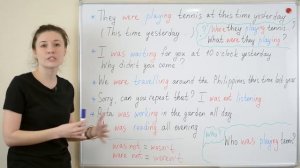 They were playing tennis at this time yesterday
(This time yesterday
? Were they playing tennis?
What were they playing?
I was waiting for you at 10 o'clock yesterday
Why didn't you come?
We were travelling around the Philippines this time last year
Sorry, can you repeat that? I was not listening
was working in the garden all day
was reading all evening
was not = wasn't
were not = weren't
Who?
Who was playing tennis?